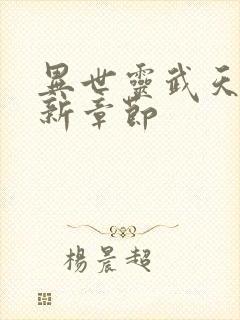 異世靈武天
新章節
楊晨超